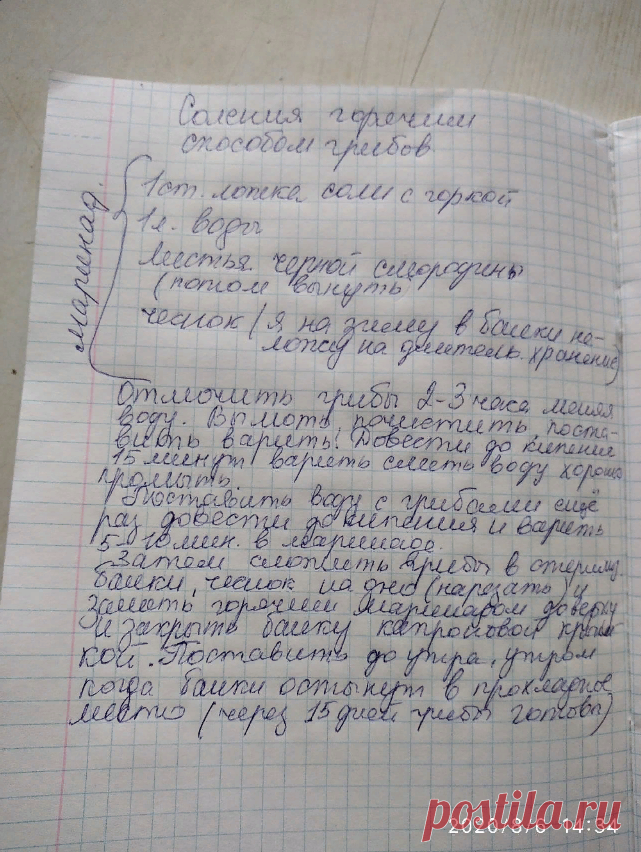 Соления горячим
способом грибов
маринад.
1 ст. ложка соли с горкой
1 л. воды
Листья черной смородины
(потом вынуть)
чеснок (я на зиму в банки не
ложу на длитель. хранение)
Отмочить грибы 2-3 часа, меняя
воду. Вымыть, почистить, поста-
вить варить. Довести до кипения
15 минут варить слить воду хорошо
промыть.
Поставить воду с грибами ещё
раз довести до кипения и варить
5-10 мин. в маринаде.
Затем сложить грибы в стерилиз.
банки, чеснок на дно (нарезать) и
залить горячим маринадом доверху
и закрыть банку капроновой крыш-
кой. Поставить до утра, утром
когда банки остынут в прохладное
место (через 15 дней грибы готовы)
postila.ru
2020/8/6 14:34